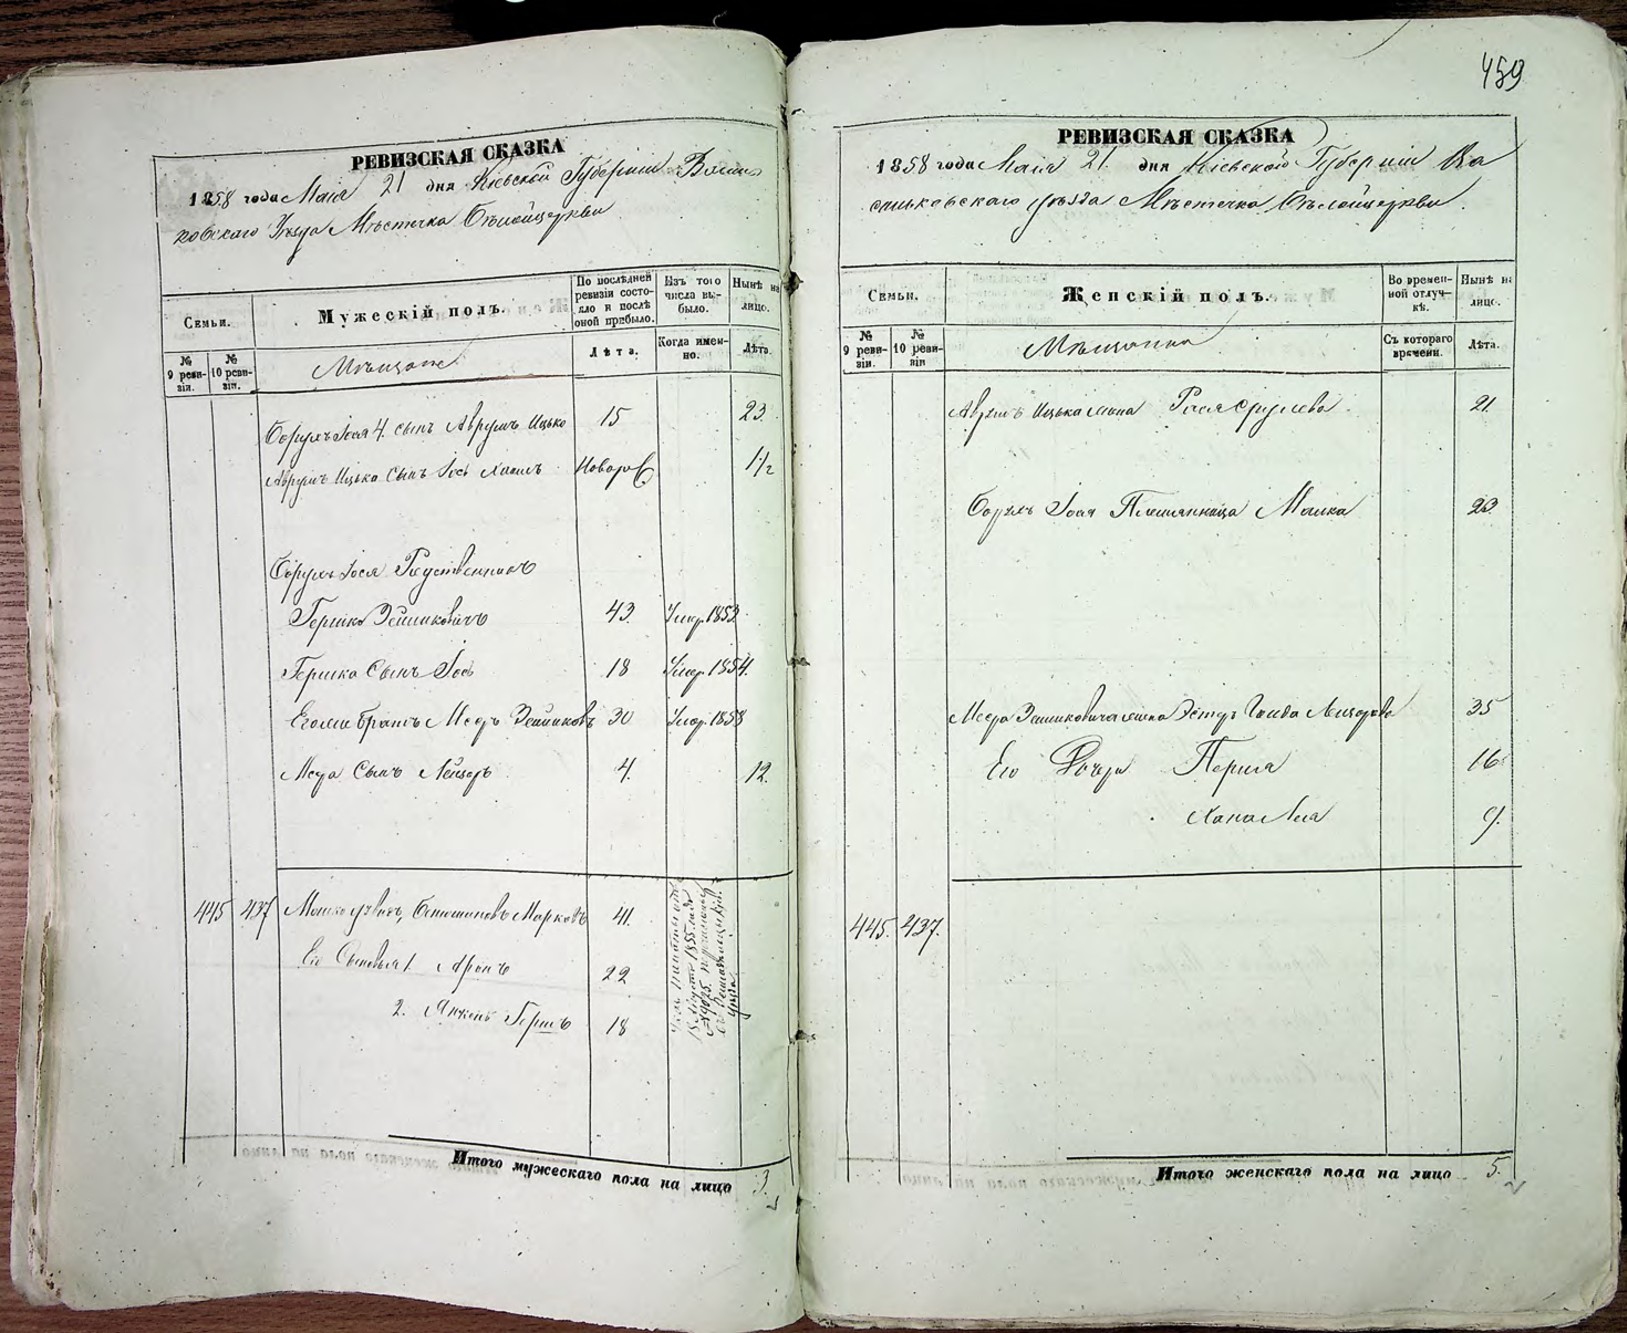 459
РЕВИЗСКАЯ СКАЗКА
1858 года Маія 21 дня Кіевской Губерніи Василь
ковскаго Уезда Мѣстечка Бѣлойцеркви
Семьи.
Мужескій полъ.
По послѣдней ревизіи состояло и послѣ оной прибыло.
Изъ того числа выбыло.
Нынѣ на лицо.
№ 9 ревизіи.
№ 10 ревизіи.
Мѣщане
Лѣта.
Когда именно.
Лѣта.
Борухъ Іося 4. сынъ Аврумъ Ицько 15 23.
Аврумъ Ицька Сынъ Іось Хаимъ Новоро 1 1/2
Борухъ Іося Родственникъ
Гершко Зейликовичъ 43. Умер. 1853.
Гершка Сынъ Іось 18 Умер. 1854.
Его же братъ Меер Зейликовъ 30 Умер. 1858
Меера Сынъ Лейзеръ 4. 12.
445 437 Марковъ 41.
Его Сыновья 1. Аронъ 22
2. Янкель Гершъ 18
1855 года
Итого мужескаго пола на лицо 3.
РЕВИЗСКАЯ СКАЗКА
1858 года Маія 21 дня Кіевской Губерніи Ва
сильковскаго уѣзда Мѣстечка Бѣлойцеркви.
Семьи.
Женскій полъ.
Во временной отлучкѣ.
Нынѣ на лицо.
№ 9 ревизіи.
№ 10 ревизіи
Мѣщанки
Съ котораго времени.
Лѣта.
Аврумъ Ицька жена Рося Сруелева. 21.
Борухъ Іося Племянница Малка 23.
Меера Зейликовича жена Эстер Голда Лейзерова 35
Его Дочери Перля 16.
Хана Лея 9.
445. 437.
Итого женскаго пола на лицо 5.